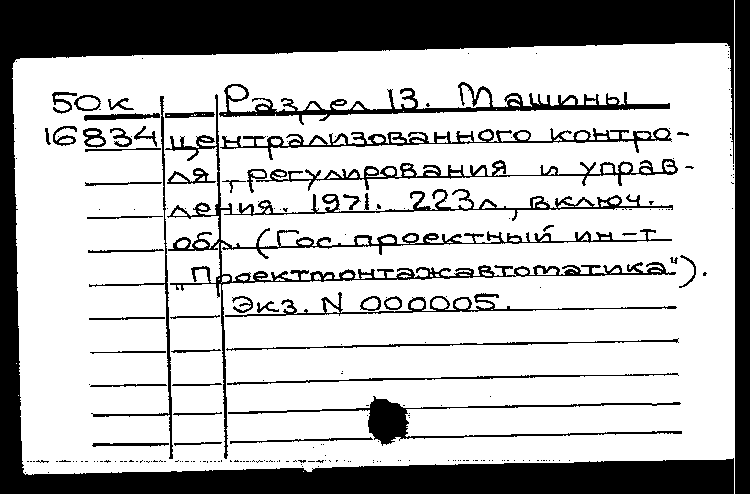 50к Раздел 13. Машины
16834 централизованного контро-
ля, регулирования и управ-
ления. 1971. 223л., включ.
обл. (Гос. проектный ин-т
„Проектмонтажавтоматика").
Экз. N 000005.